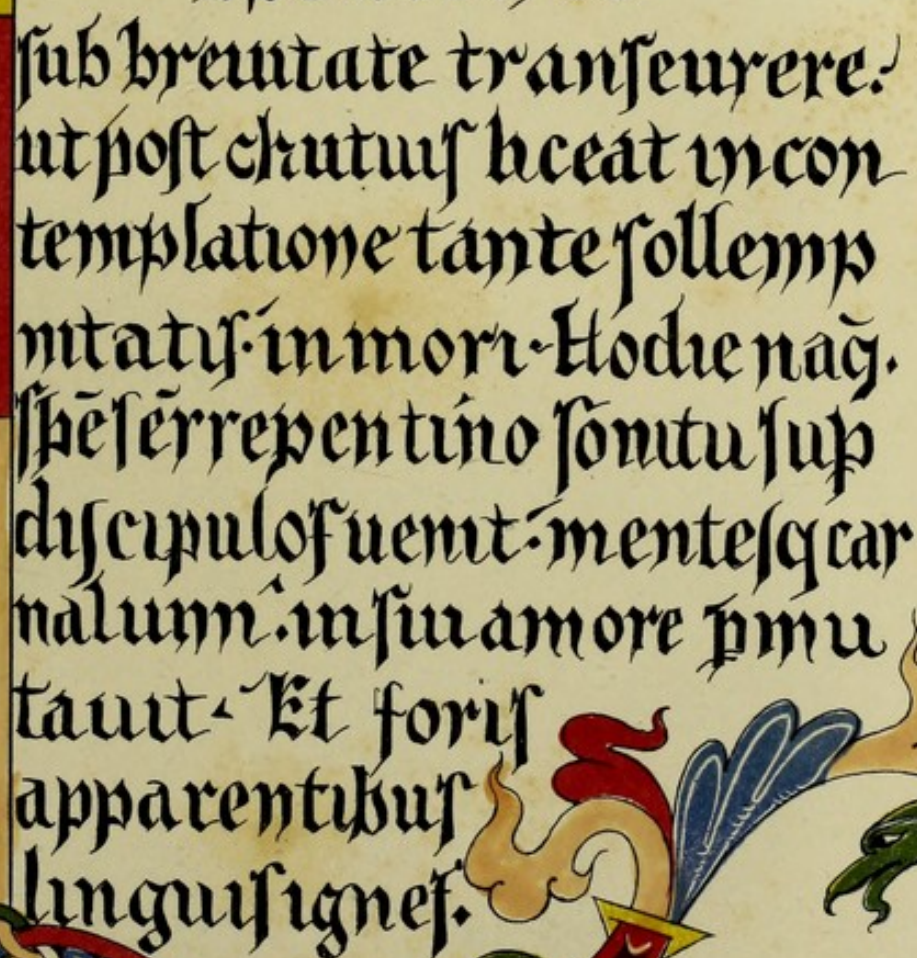 ſub breuitate tranſeurere:
ut poſt chutuiſ liceat in con
templatione tante ſollemp
nitatiſ. inmori. Hodie naq̃.
ſp̄ē ſc̄r repentino ſonitu ſuꝑ
diſcipuloſ uenit: menteſq car
nalium. in ſui amore ꝑmu
tauit. Et foriſ
apparentibuſ
linguiſ igneſ.